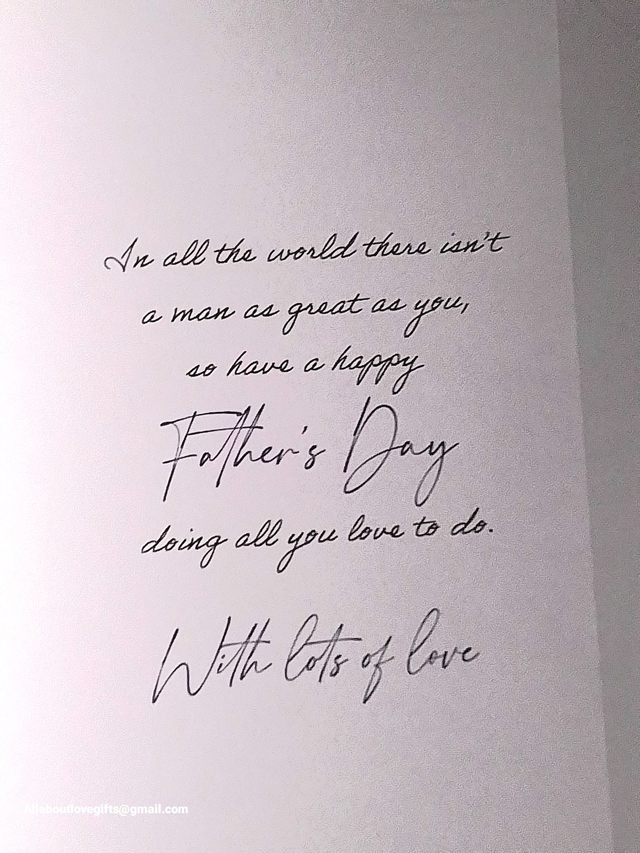 In all the world there isn't
a man as great as you,
so have a happy
Father's Day
doing all you love to do.
With lots of love
Allaboutlovegifts@gmail.com